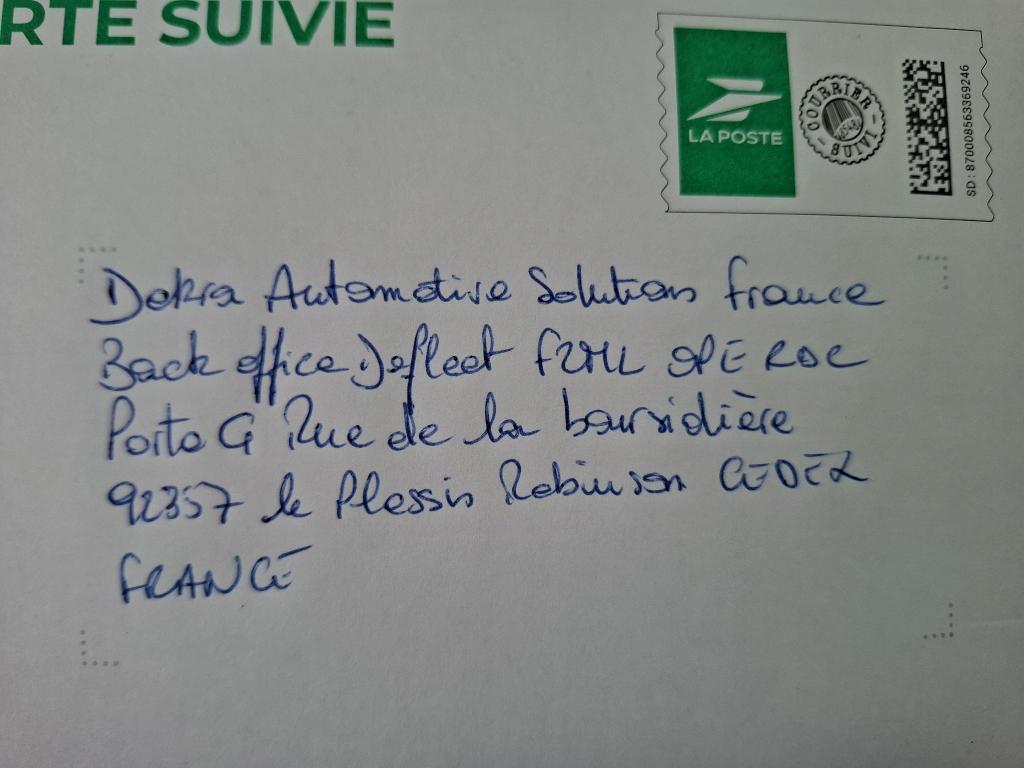 RTE SUIVIE
LA POSTE
COURRIER
SUIVI
SD : 870008563369246
Dekra Automotive Solutions France
Back office Defleet
Porte G Rue de la boursidière
92357 le Plessis Robinson CEDEX
FRANCE